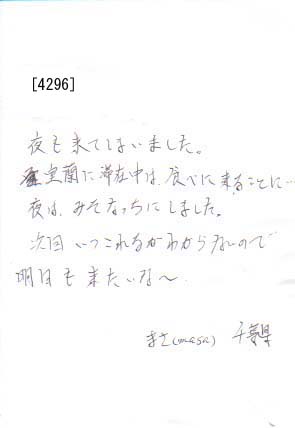 [4296]
夜も来てしまいました。
室蘭に滞在中は、食べに来ることに…
夜は、みそなっちにしました。
次回いつこれるかわからないので
明日も来たいな〜
まさ(masa) 千葉県